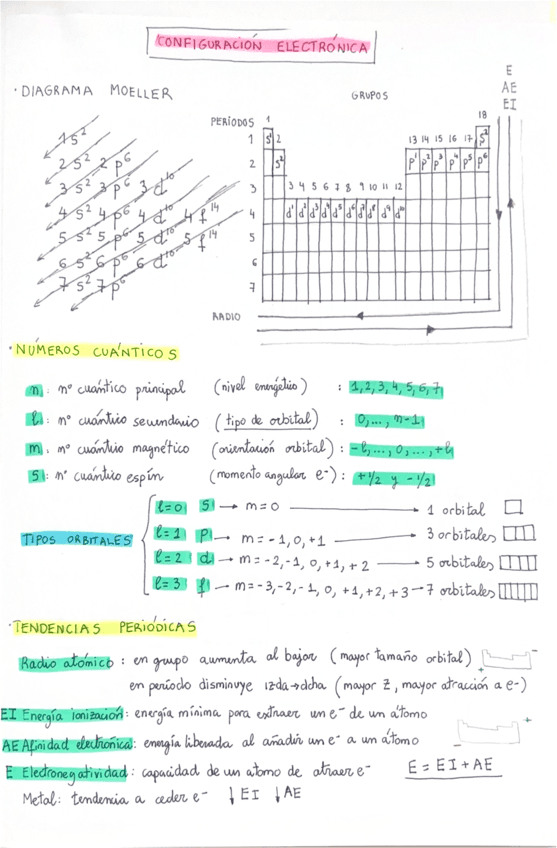 CONFIGURACIÓN ELECTRÓNICA
· DIAGRAMA MOELLER
1s²
2s² 2p⁶
3s² 3p⁶ 3d¹⁰
4s² 4p⁶ 4d¹⁰ 4f¹⁴
5s² 5p⁶ 5d¹⁰ 5f¹⁴
6s² 6p⁶ 6d¹⁰
7s² 7p⁶
GRUPOS
E
AE
EI
PERÍODOS 1 18
1 s¹ 2 13 14 15 16 17 s²
2 s² p¹ p² p³ p⁴ p⁵ p⁶
3 3 4 5 6 7 8 9 10 11 12
4 d¹ d² d³ d⁴ d⁵ d⁶ d⁷ d⁸ d⁹ d¹⁰
5
6
7
RADIO
· NÚMEROS CUÁNTICOS
n : nº cuántico principal (nivel energético) : 1,2,3,4,5,6,7
l : nº cuántico secundario (tipo de orbital) : 0,..., n-1
m : nº cuántico magnético (orientación orbital) : -l,..., 0,..., +l
s : nº cuántico espín (momento angular e⁻) : +1/2 y -1/2
TIPOS ORBITALES
l=0 s → m=0 → 1 orbital
l=1 p → m=-1,0,+1 → 3 orbitales
l=2 d → m=-2,-1,0,+1,+2 → 5 orbitales
l=3 f → m=-3,-2,-1,0,+1,+2,+3 → 7 orbitales
· TENDENCIAS PERIÓDICAS
Radio atómico : en grupo aumenta al bajar (mayor tamaño orbital) + -
en período disminuye izda→dcha (mayor Z, mayor atracción a e-)
EI Energía ionización: energía mínima para extraer un e⁻ de un átomo
AE Afinidad electrónica: energía liberada al añadir un e⁻ a un átomo - +
E Electronegatividad: capacidad de un atomo de atraer e⁻ E = EI + AE
Metal: tendencia a ceder e⁻ ↓EI ↓AE